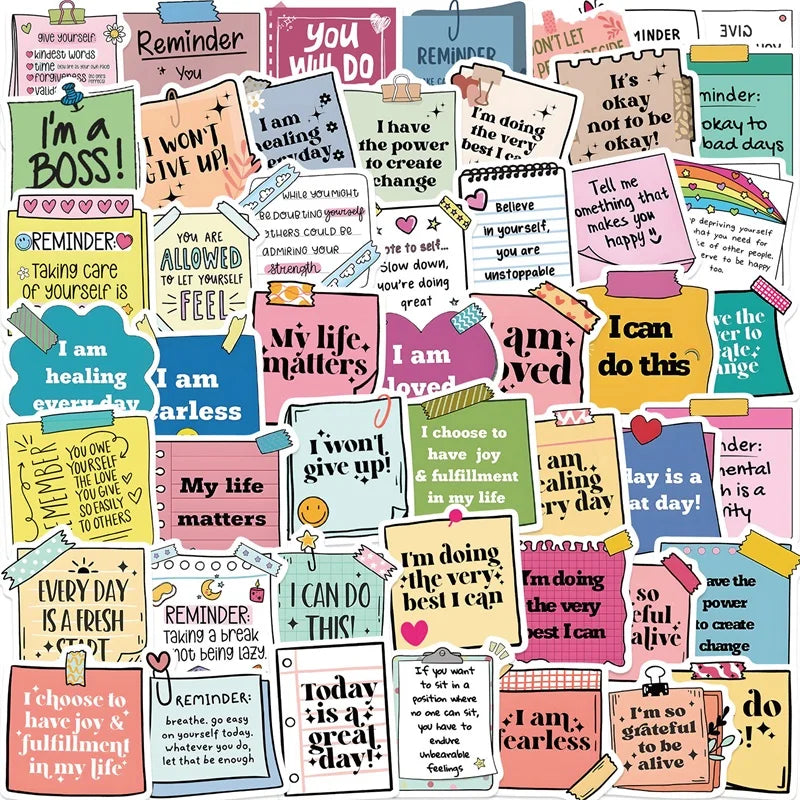 give yourself:
kindest words
time (you are at your own pace)
forgiveness
valid
Reminder
You
You
Will Do
REMINDER
ON'T LET
DECIDE
MINDER
GIVE
I'm a
BOSS!
I WON'T
GIVE UP!
I am
healing
everyday
I have
the power
to create
change
I'm doing
the very
best I can
It's
okay
not to be
okay!
minder:
okay to
bad days
REMINDER:
Taking care
of yourself is
YOU ARE
ALLOWED
TO LET YOURSELF
FEEL
WHILE YOU MIGHT
BE DOUBTING yourself
OTHERS COULD BE
ADMIRING YOUR
strength
ote to self...
Slow down,
you're doing
great
Believe
in yourself,
you are
unstoppable
Tell me
omething that
makes you
happy
p depriving yourself
what you need for
ke of other people.
erve to be happy
too.
I am
healing
every day
I am
arless
My life
matters
I am
loved
am
oved
I can
do this
ve the
er to
ate
nge
REMEMBER
YOU OWE
YOURSELF
THE LOVE
YOU GIVE
SO EASILY
TO OTHERS
My life
matters
I won't
give up!
I choose to
have joy
& fulfillment
in my life
I am
ealing
ery day
day is a
at day!
nder:
mental
h is a
rity
EVERY DAY
IS A FRESH
START
REMINDER:
Taking a break
not being lazy.
I CAN DO
THIS!
I'm doing
the very
best I can
I'm doing
the very
best I can
so
eful
alive
ave the
power
to create
change
I choose to
have joy &
fulfillment
in my life
REMINDER:
breathe. go easy
on yourself today.
whatever you do,
let that be enough
Today
is a
great
day!
If you want
to sit in a
position where
no one can sit,
you have to
endure
unbearable
feelings
I am
fearless
I'm so
grateful
to be
alive
do
!